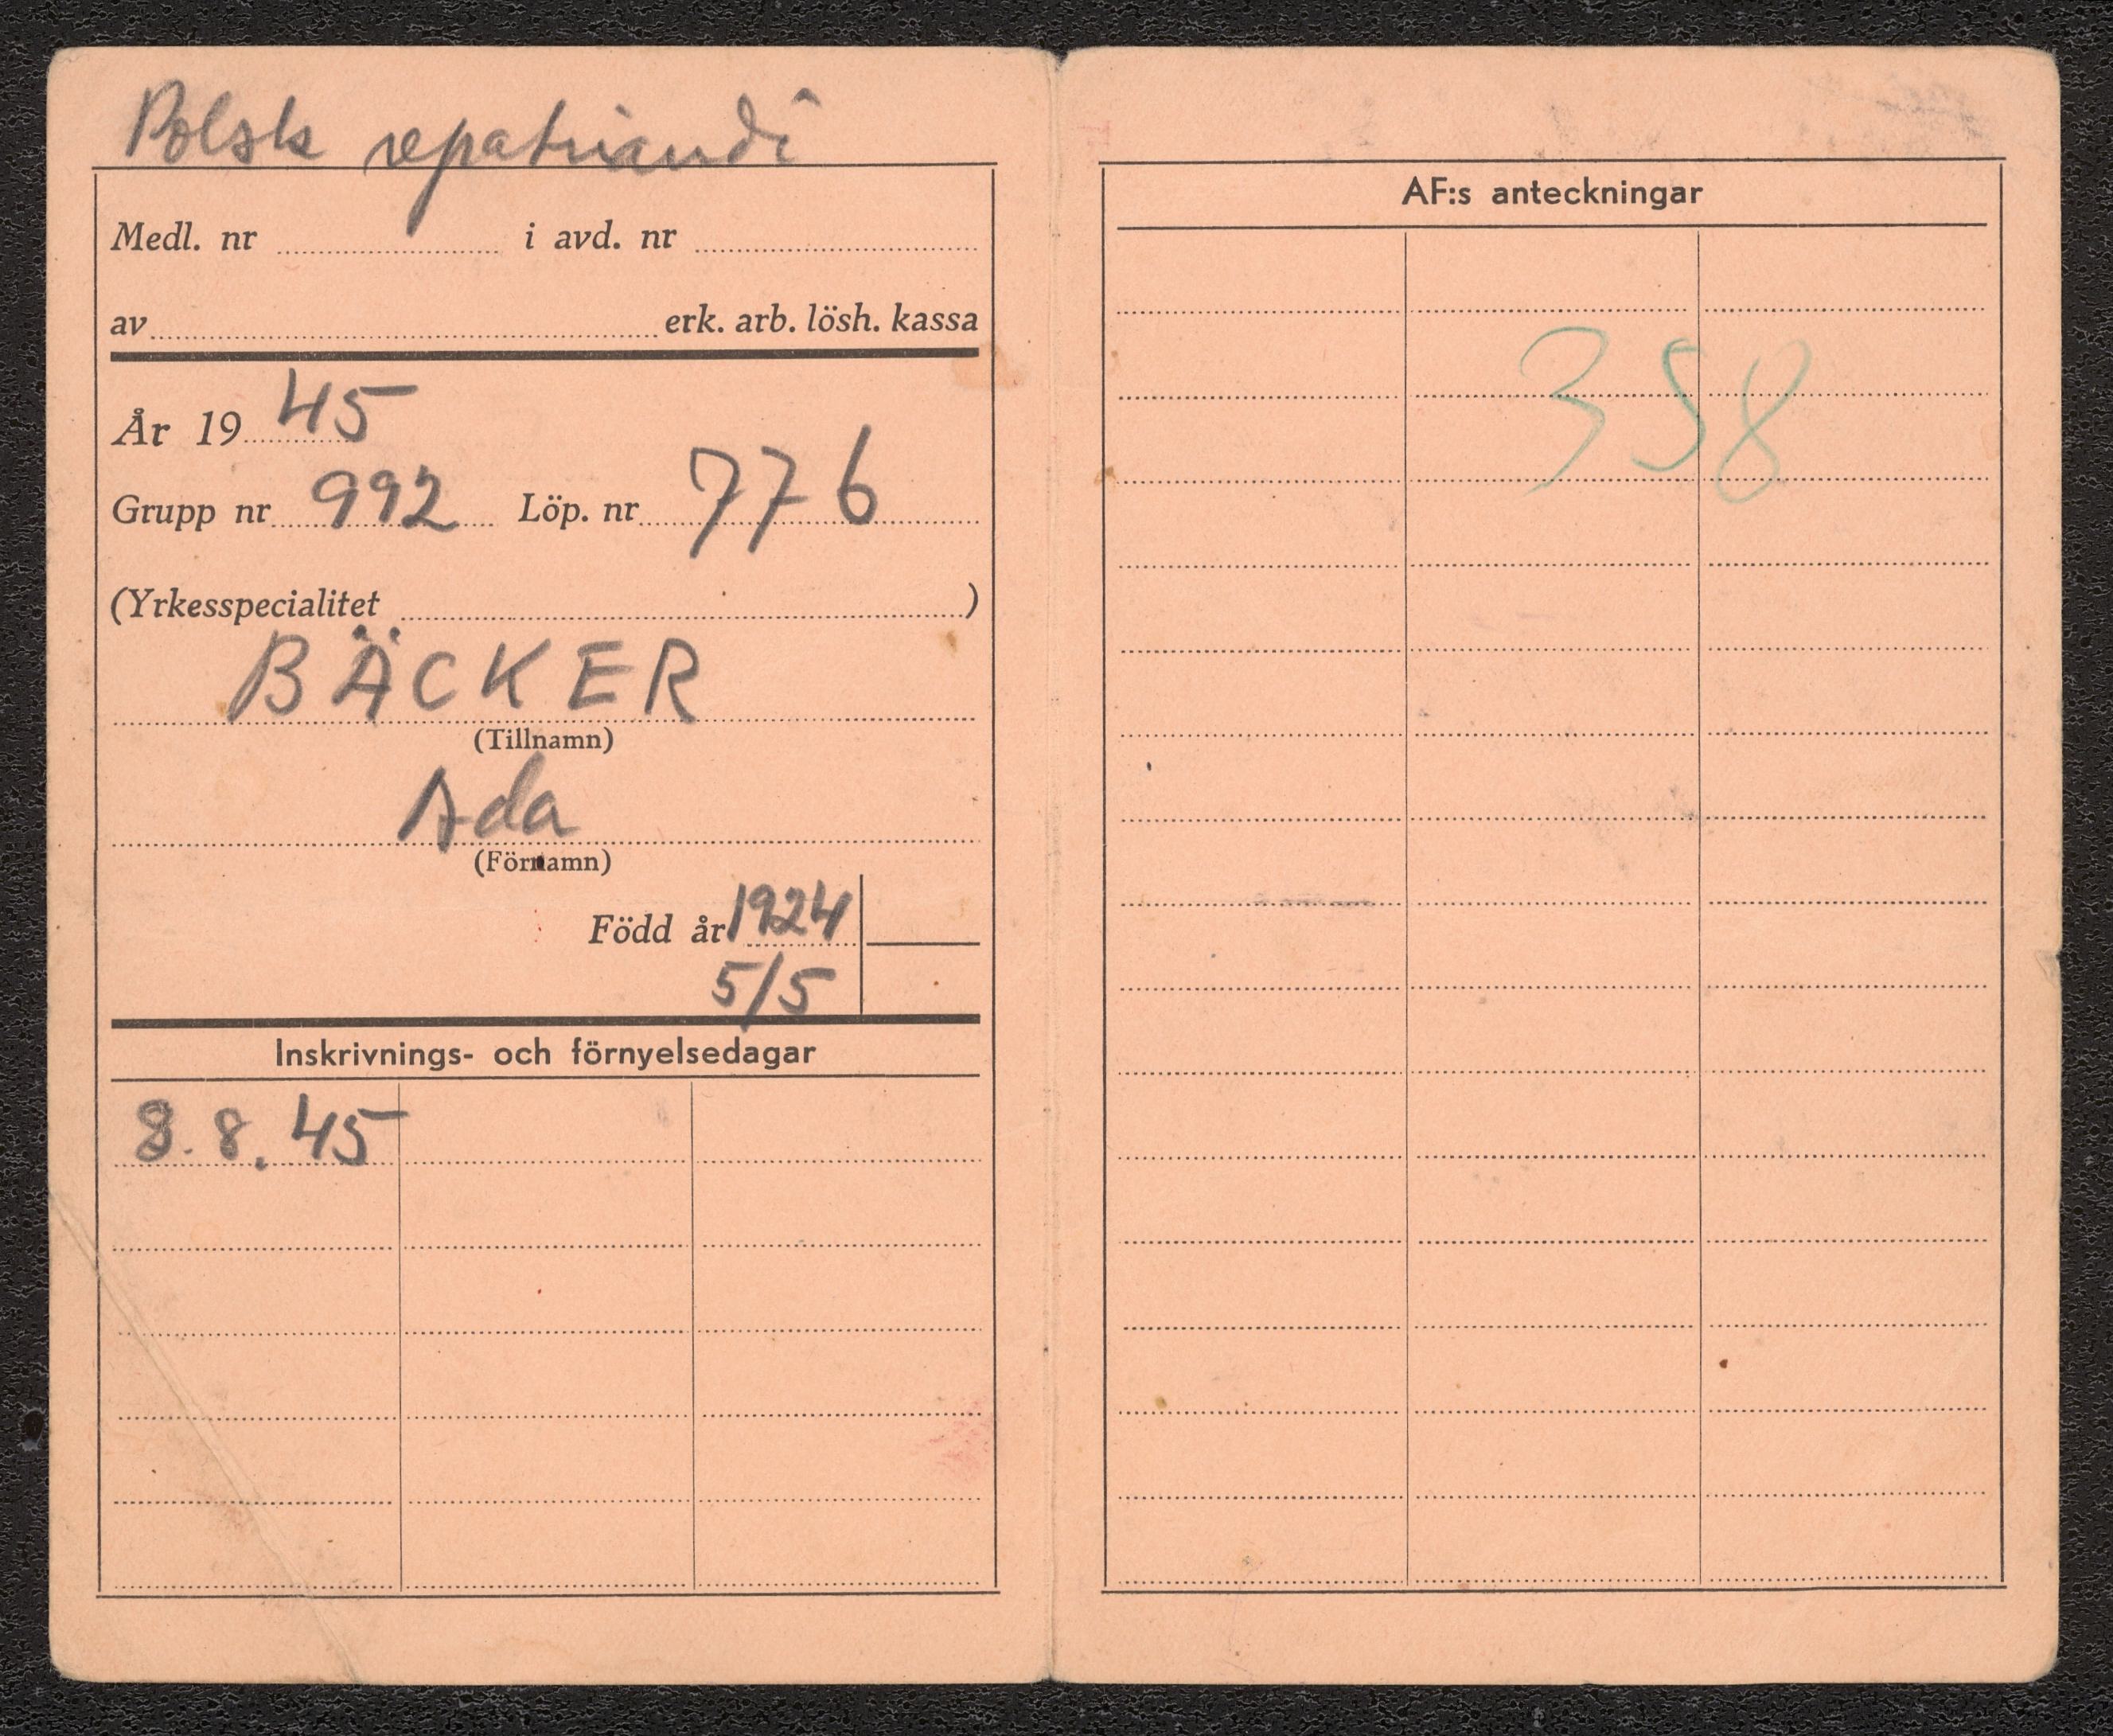 Polsk repatriandi
Medl. nr i avd. nr
av erk. arb. lösh. kassa
År 19 45
Grupp nr 992 Löp. nr 776
(Yrkesspecialitet )
BÄCKER
(Tillnamn)
Ada
(Förnamn)
Född år 1924
5/5
Inskrivnings- och förnyelsedagar
8.8.45
AF:s anteckningar
358